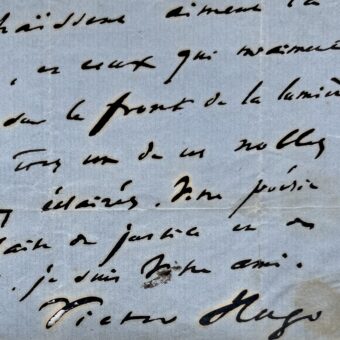 haïssent aiment la
, et ceux qui m'aiment
dans le front de la lumiè
êtes un de ces nobles
éclairés. Votre poésie
faite de justice et de
. je suis Votre ami.
Victor Hugo